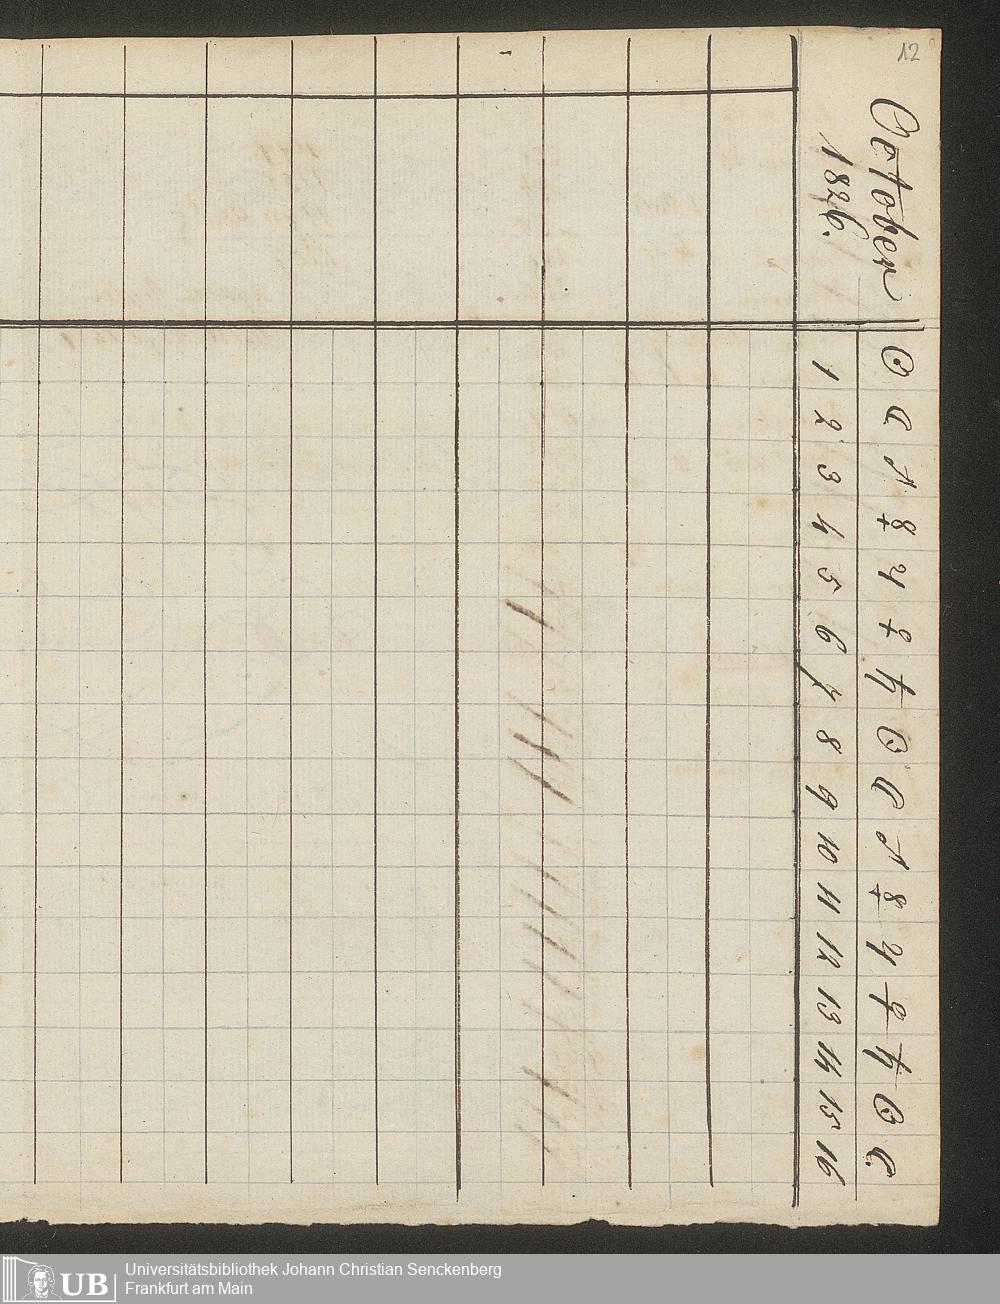 12
October
1826.
☉ ☾ ♂ ☿ ♃ ♀ ♄ ☉ ☾ ♂ ☿ ♃ ♀ ♄ ☉ ☾.
1 2 3 4 5 6 7 8 9 10 11 12 13 14 15 16
UB
Universitätsbibliothek Johann Christian Senckenberg
Frankfurt am Main